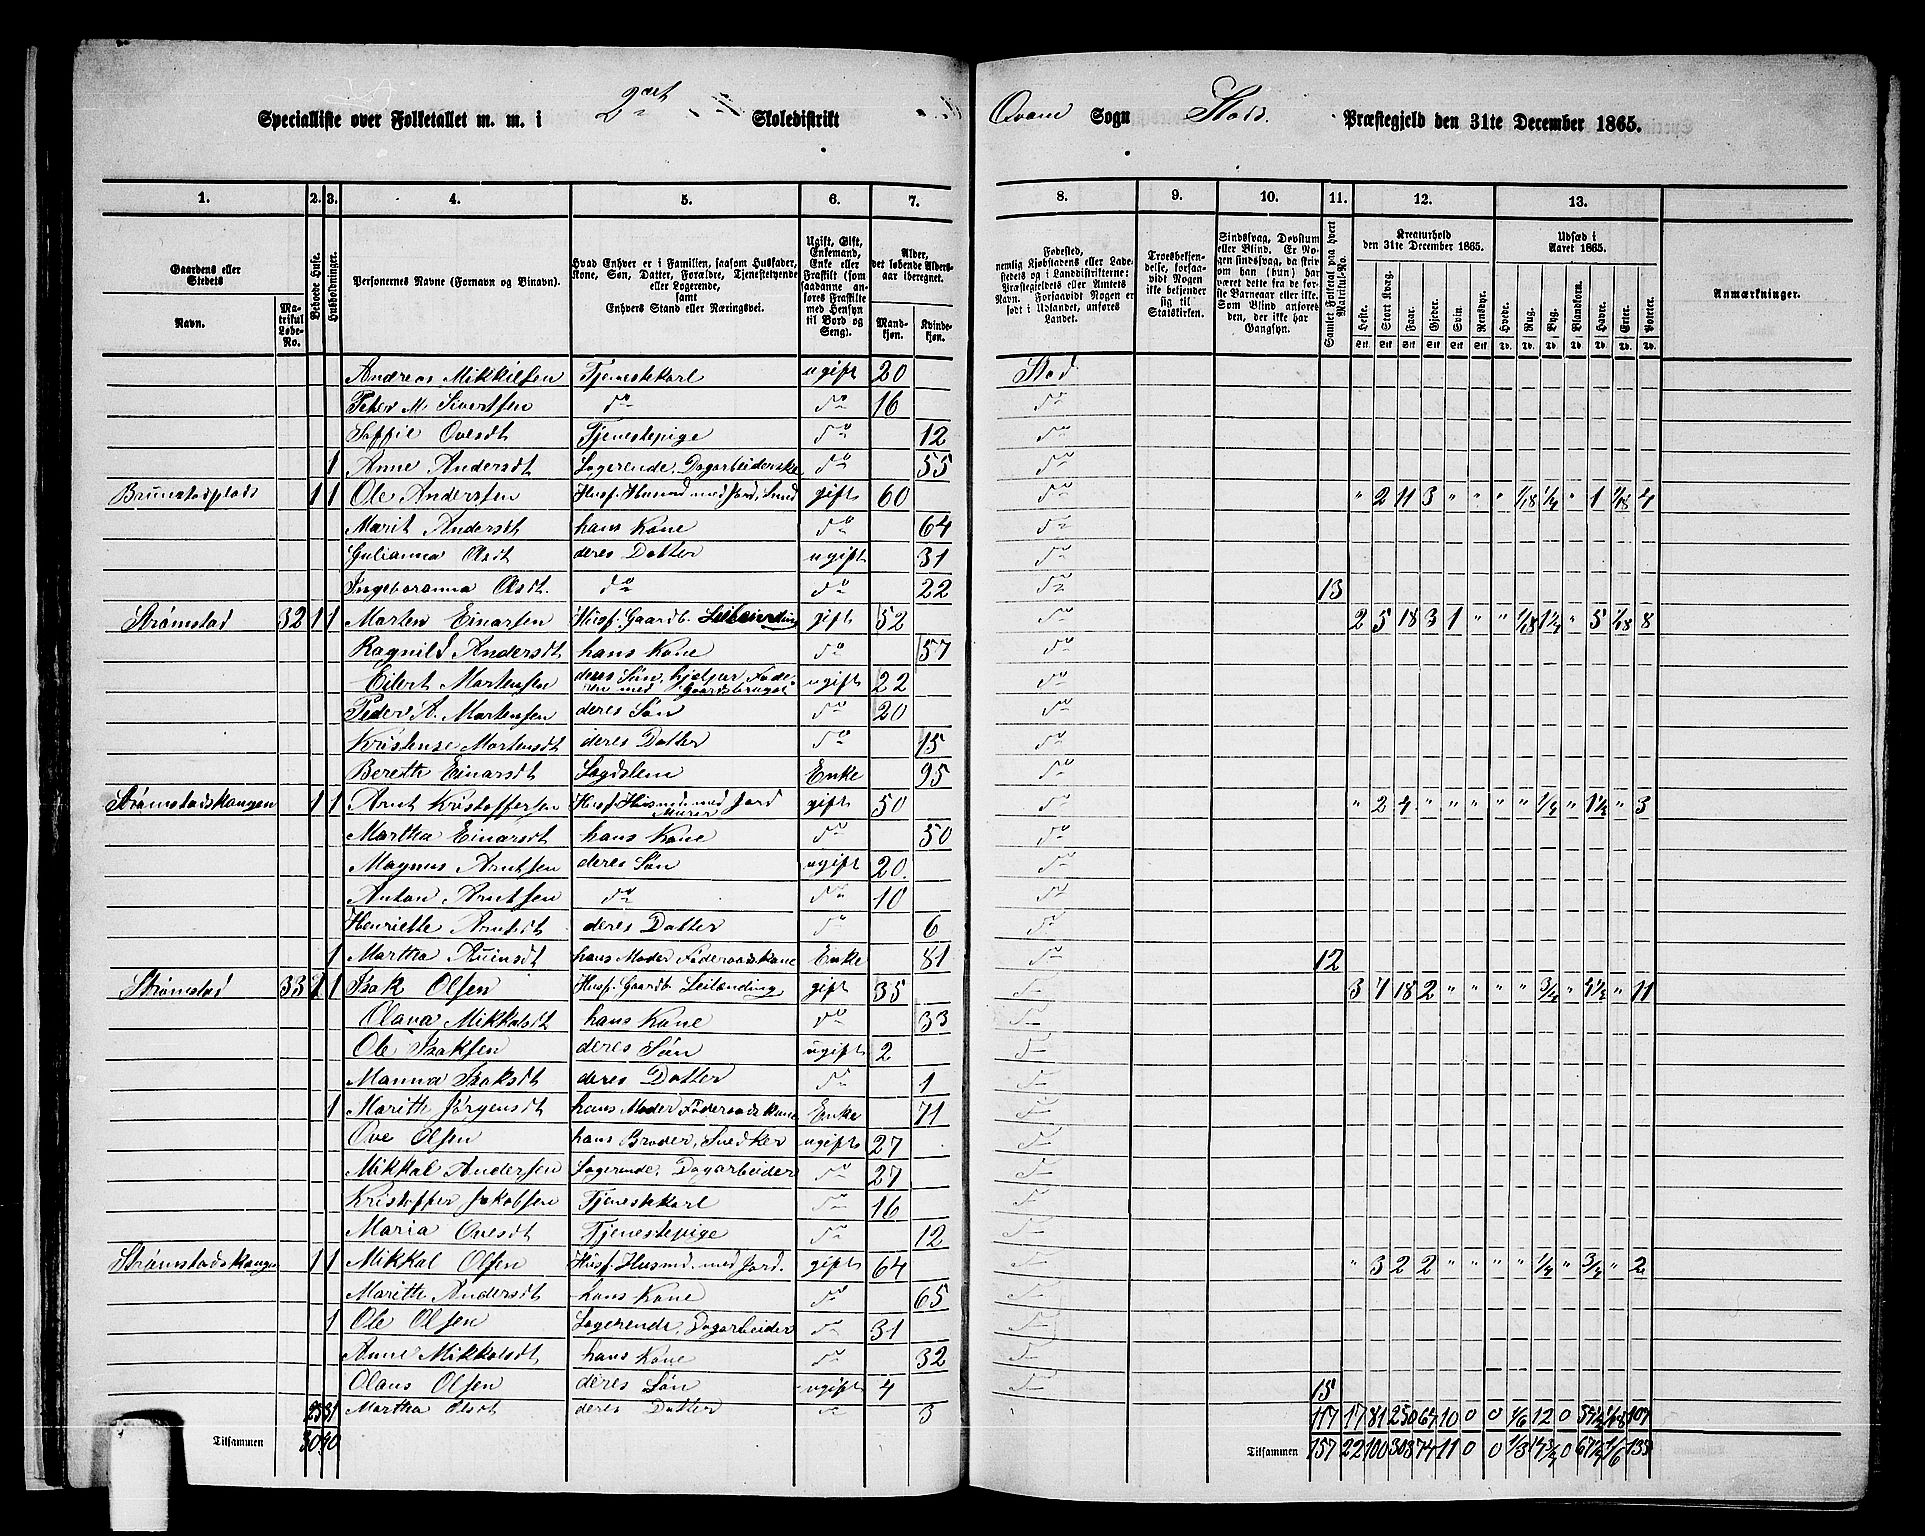 Specialliste over Folketallet m. m. i 2det Skoledistrikt Qvam Sogn Stods Præstegjeld den 31te December 1865.
1. 2. 3. 4. 5. 6. 7. 8. 9. 10. 11. 12. 13.
Gaardens eller Stedets Navn.
Matrikul Løbe-No.
Beboede Huse.
Husholdninger.
Personernes Navne (Fornavn og Tilnavn).
Hvad Enhver er i Familien, saasom Husfader, Kone, Søn, Datter, Forældre, Tjenestetyende eller Logerende, samt Enhvers Stand eller Næringsvei.
Ugift, Gift, Enkemand, Enke eller Fraskilt (saadanne anføres Fraskilte med Hensyn til Bord og Seng).
Alder, det løbende Aldersaar iberegnet.
Mandkjøn. Kvindekjøn.
Fødested, nemlig Kjøbstadens eller Ladestedets og i Landdistrikterne: Præstegjeldets eller Amtets Navn. Forsaavidt Nogen er født i Udlandet, anføres Landet.
Troesbekjendelse, forsaavidt Nogen ikke bekjender sig til Statskirken.
Sindssvag, Døvstum eller Blind. Er Nogen sindssvag, da skriv om han (hun) har været dette fra de første Barneaar eller ikke. Som Blind anføres den, der ikke har Gangsyn.
Samlet Folketal paa hvert Matrikul-No.
Kreaturhold den 31te December 1865.
Heste. Stort Kvæg. Faar. Gjeder. Svin. Rensdyr.
Udsæd i Aaret 1865.
Hvede. Rug. Byg. Blandkorn. Havre. Erter. Poteter.
Anmærkninger.
Andreas Mikkelsen Tjenestekarl ugift 20 Stod
Peter M. Sivertsen do do 16 do
Soffie Ovesdt Tjenestepige do 12 do
1 Anne Andersdt Logerende, Dagarbeiderske do 55 do
Brunstadplads 1 1 Ole Andersen Husf. Husmd med Jord, Smed gift 60 do " 2 11 3 " " " 1/18 1/4 " 1 1/18 4
Marit Andersdt hans Kone do 64 do
Gulianna Olsdt deres Datter ugift 31 do
Ingeboranna Olsdt. do do 22 do 13
Strømstad 32 1 1 Morten Einarsen Husf. Gaardb. Leilending gift 52 do 2 5 18 3 1 " " 1/18 1 1/4 " 5 1/18 8
Ragnild Andersdt hans Kone do 57 do
Eilert Mortensen deres Søn, hjelper Faderen med Gaardsbruget ugift 22 do
Peder A. Mortensen deres Søn do 20 do
Kristense Mortensdt deres Datter do 15 do
Berethe Einarsdt Lægdslem Enke 95 do
Strømstadskangen 1 1 Arnt Kristoffersen Husf. Husmd med Jord Murer gift 50 do " 2 4 " " " " " 1/4 " 1 1/2 " 3
Martha Einarsdt hans Kone do 50 do
Magnus Arntsen deres Søn ugift 20. do
Anton Arntsen do do 10 do
Henriette Arntsdt deres Datter do 6 do
1 Martha hans Moder Føderaadskone Enke 81 do 12
Strømstad 33 1 1 Isak Olsen Husf. Gaardb. Leilænding gift 35 do 3 7 18 2 " " " " 3/4 " 4 1/2 " 11
Olava Mikkalsdt hans Kone do 33 do
Ole Isaksen deres Søn ugift 2 do
Manna Isaksdt deres Datter do 1 do
1 Marith Jørgensdt hans Moder Føderaadskone Enke 71 do
Ove Olsen hans Broder, Snedker ugift 27 do
Mikkal Andersen Logerende, Dagarbeider do 27 do
Kristoffer Jakobsen Tjenestekarl do 16 do
Maria Ovesdt Tjenestepige do 12 do
Strømstadskangen 1 1 Mikkal Olsen Husf. Husmd. med Jord. gift 64 do " 3 2 2 " " " " 1/4 " 3/4 " 2
Marith Andersdt hans Kone do 65 do
1 Ole Olsen Logerende, Dagarbeider do 31 do
Anne Mikkalsdt hans Kone do 32 do
Olaus Olsen deres Søn ugift 4 do 15
25 31 Martha Olsdt deres Datter do 3 117 17 81 250 64 10 0 0 1/6 12 0 107
Tilsammen 30 40 Tilsammen 157 22 100 303 74 11 0 0 1/3 14 3/4 0 67 1/4 1/6 135